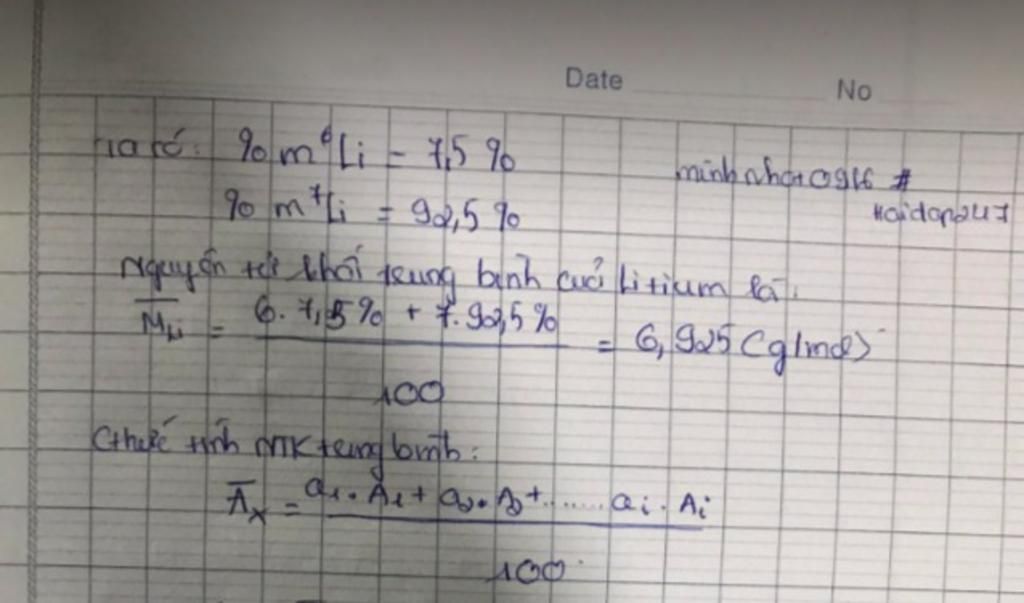 Date No
Ta có: % m ⁶Li = 7,5 %
minhnhat0916 #
% m ⁷Li = 92,5 %
hoidap247
Nguyên tử khối trung bình của Litium là:
M̅Li = 6. 7,5% + 7. 92,5% = 6,925 (g/mol)
100
Cthức tính NTK trung bình:
A̅x = a₁. A₁ + a₂. A₂ + ...... ai. Ai
100